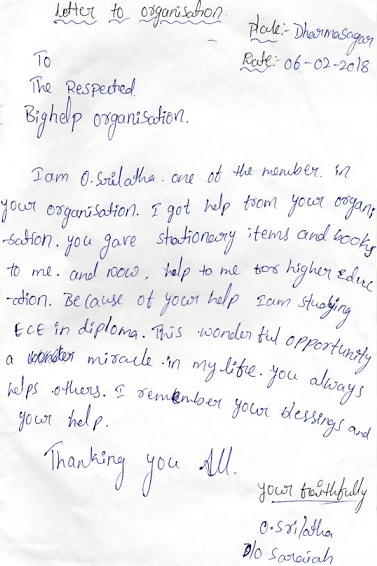 Letter to organisation.
Place:- Dharmasagar
Date:- 06-02-2018
To
The Respected
Bighelp organisation.
I am O.Srilatha. one of the member in
your organisation. I got help from your organi
-sation. you gave stationary items and books
to me. and now, help to me for higher Educ
-ation. Because of your help I am studying
ECE in diploma. This wonderful opportunity
a miracle in my life. you always
helps others. I remember your blessings and
your help.
Thanking you All.
your faithfully
O.Srilatha
D/O Saraiah